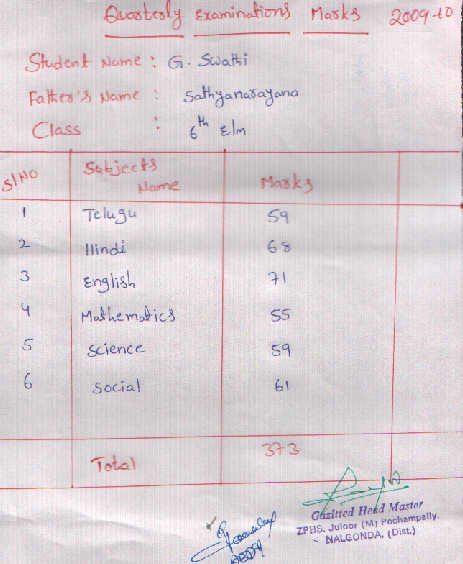 Quarterly Examinations Marks 2009-10
Student Name : G. Swathi
Father's Name : Sathyanarayana
Class : 6th E/m
Sl NO Subjects Name Marks
1 Telugu 59
2 Hindi 68
3 English 71
4 Mathematics 55
5 Science 59
6 Social 61
Total 373
Gazitted Head Master
ZPHS. Juloor (M) Pochampally.
NALGONDA, (Dist.)